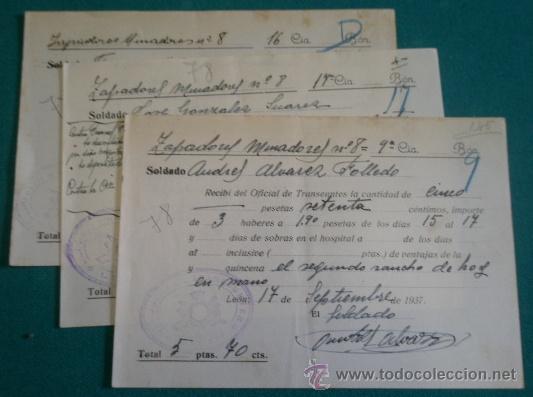 Zapadores Minadores nº 8 16 Cia. D Bon.
Sol
Total
78
Zapadores Minadores nº 8 1ª Cia. Bon.
Soldado José Gonzalez Suarez 17
Total
185
Zapadores Minadores nº 8 = 9ª Cia. Bon.
9
Soldado Andrés Alvarez Folledo
Recibí del Oficial de Transeuntes la cantidad de cinco
pesetas setenta céntimos, importe
78
de 3 haberes a 1'90 pesetas de los días 15 al 17
y días de sobras en el hospital a de los días
al inclusive ( ptas.) de ventajas de la
y quincena el segundo rancho de hoy
en mano
León, 17 de Septiembre de 1937.
El Soldado
Alvarez
Total 5 ptas. 70 cts.
MH www.todocoleccion.net